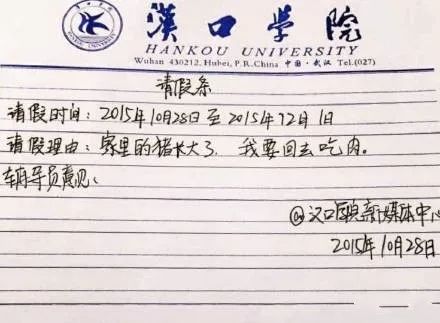 漢口學院
HANKOU UNIVERSITY
Wuhan 430212, Hubei, P.R.China 中国·武汉 Tel.(027)
请假条
请假时间：2015年10月28日至2015年12月1日
请假理由：家里的猪长大了，我要回去吃肉。
辅导员意见：
@汉口学院新媒体中心
2015年10月28日